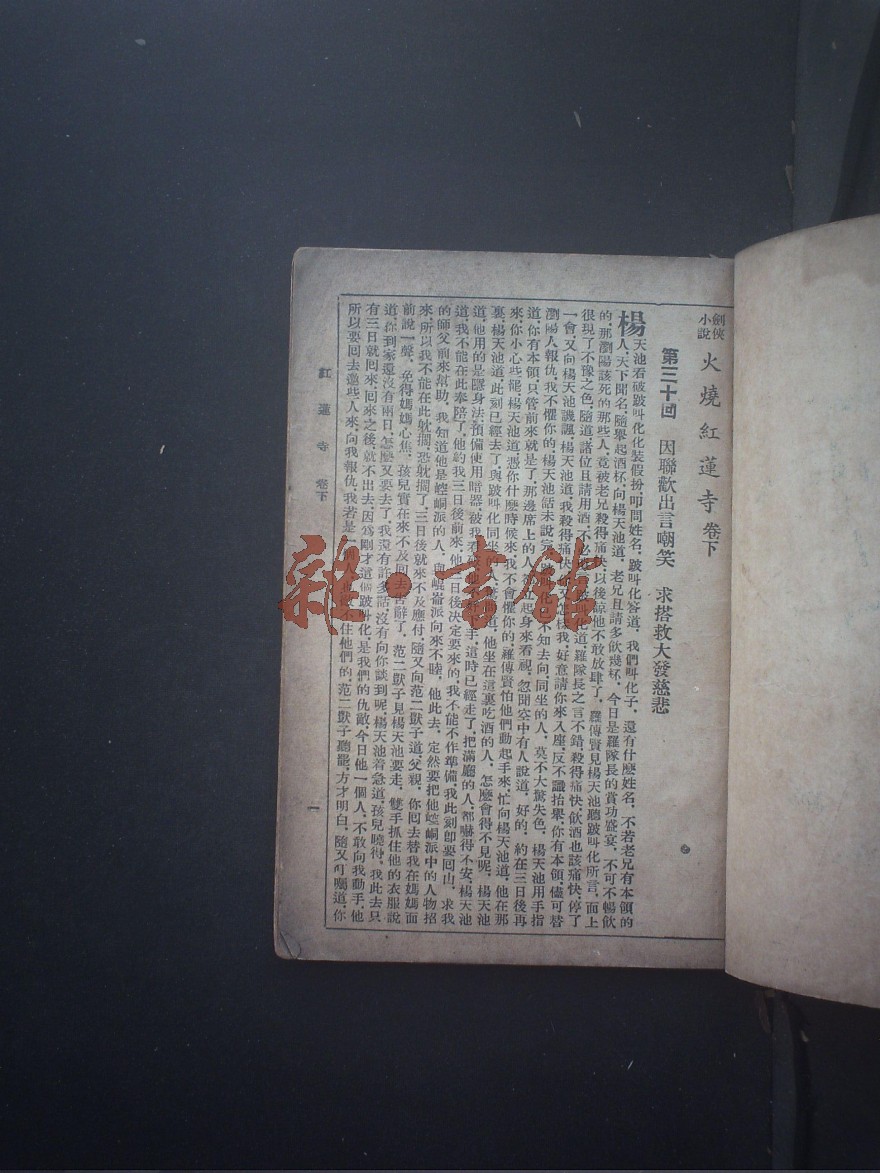 劍俠小說 火燒紅蓮寺 卷下
第三十回 因聯歡出言嘲笑 求搭救大發慈悲
楊天池看破跛叫化化裝假扮，叩問姓名，跛叫化答道，我們叫化子，還有什麼姓名，不若老兄有本領的
人，天下聞名，隨舉起酒杯，向楊天池道，老兄且請多飲幾杯，今日是羅隊長的賞功盛宴，不可不暢飲
的，那瀏陽該死的那些人，竟被老兄殺得痛快，以後諒他不敢放肆了，羅傳賢見楊天池聽跛叫化所言，面上
很現了不豫之色，隨道，諸位且請用酒，不必 跛叫化道，羅隊長之言不錯，殺得痛快，飲酒也該痛快，停了
一會，又向楊天池譏諷，楊天池道，我殺得痛快 我，好意請你來入座，反不識抬舉，你有本領，儘可替
瀏陽人報仇，我不懼你的，楊天池話未說完 不知去向，同坐的人，莫不大驚失色，楊天池用手指
道，你有本領，只管前來就是了，那邊席上的人 起身來看視，忽聞空中有人說道，好的，約在三日後再
來，你小心些罷，楊天池道，憑你什麼時候來，我不會懼你的，羅傳賢怕他們動起手來，忙向楊天池道，他在那
裏，楊天池道，此刻已經去了，與跛叫化同坐的人 道，他坐在這裏吃酒的人，怎麼會得不見呢，楊天池
道，他用的是隱身法，預備使用暗器，被我看 手，這時已經走了，把滿廳的人，都嚇得不安，楊天池
道，我不能在此奉陪了，他約我三日後前來，他三日後決定要來的，我不能不作準備，我此刻卽要回山，求我
的師父前來幫助，我知道他是崆峒派的人，與崐崙派向來不睦，他此去，定然要把他崆峒派中的人物招
來，所以我不能在此躭擱，恐躭擱了，三日後就來不及應付，隨又向范二獃子道，父親，你回去替我在媽媽面
前說一聲，免得媽媽心焦，孩兒實在來不及回去告辭了，范二獃子見楊天池要走，雙手抓住他的衣服說
道，你到家還沒有兩日，怎麼又要去了，我還有許多話，沒有向你談到呢，楊天池着急道，孩兒曉得，我此去只
有三日就回來，回來之後，就不出去，因爲剛才這個跛叫化，是我們的仇敵，今日他一個人，不敢向我動手，他
所以要回去邀些人來，向我報仇，我若是一 住他們的，范二獃子聽罷，方才明白，隨又叮囑道，你
紅蓮寺 卷下 一
雜·書館